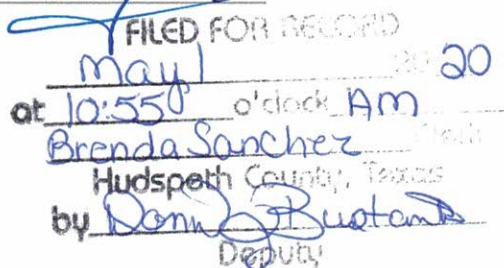 FILED FOR RECORD
May 1 20 20
at 10:55 o'clock AM
Brenda Sanchez Clerk
Hudspeth County, Texas
by
Deputy